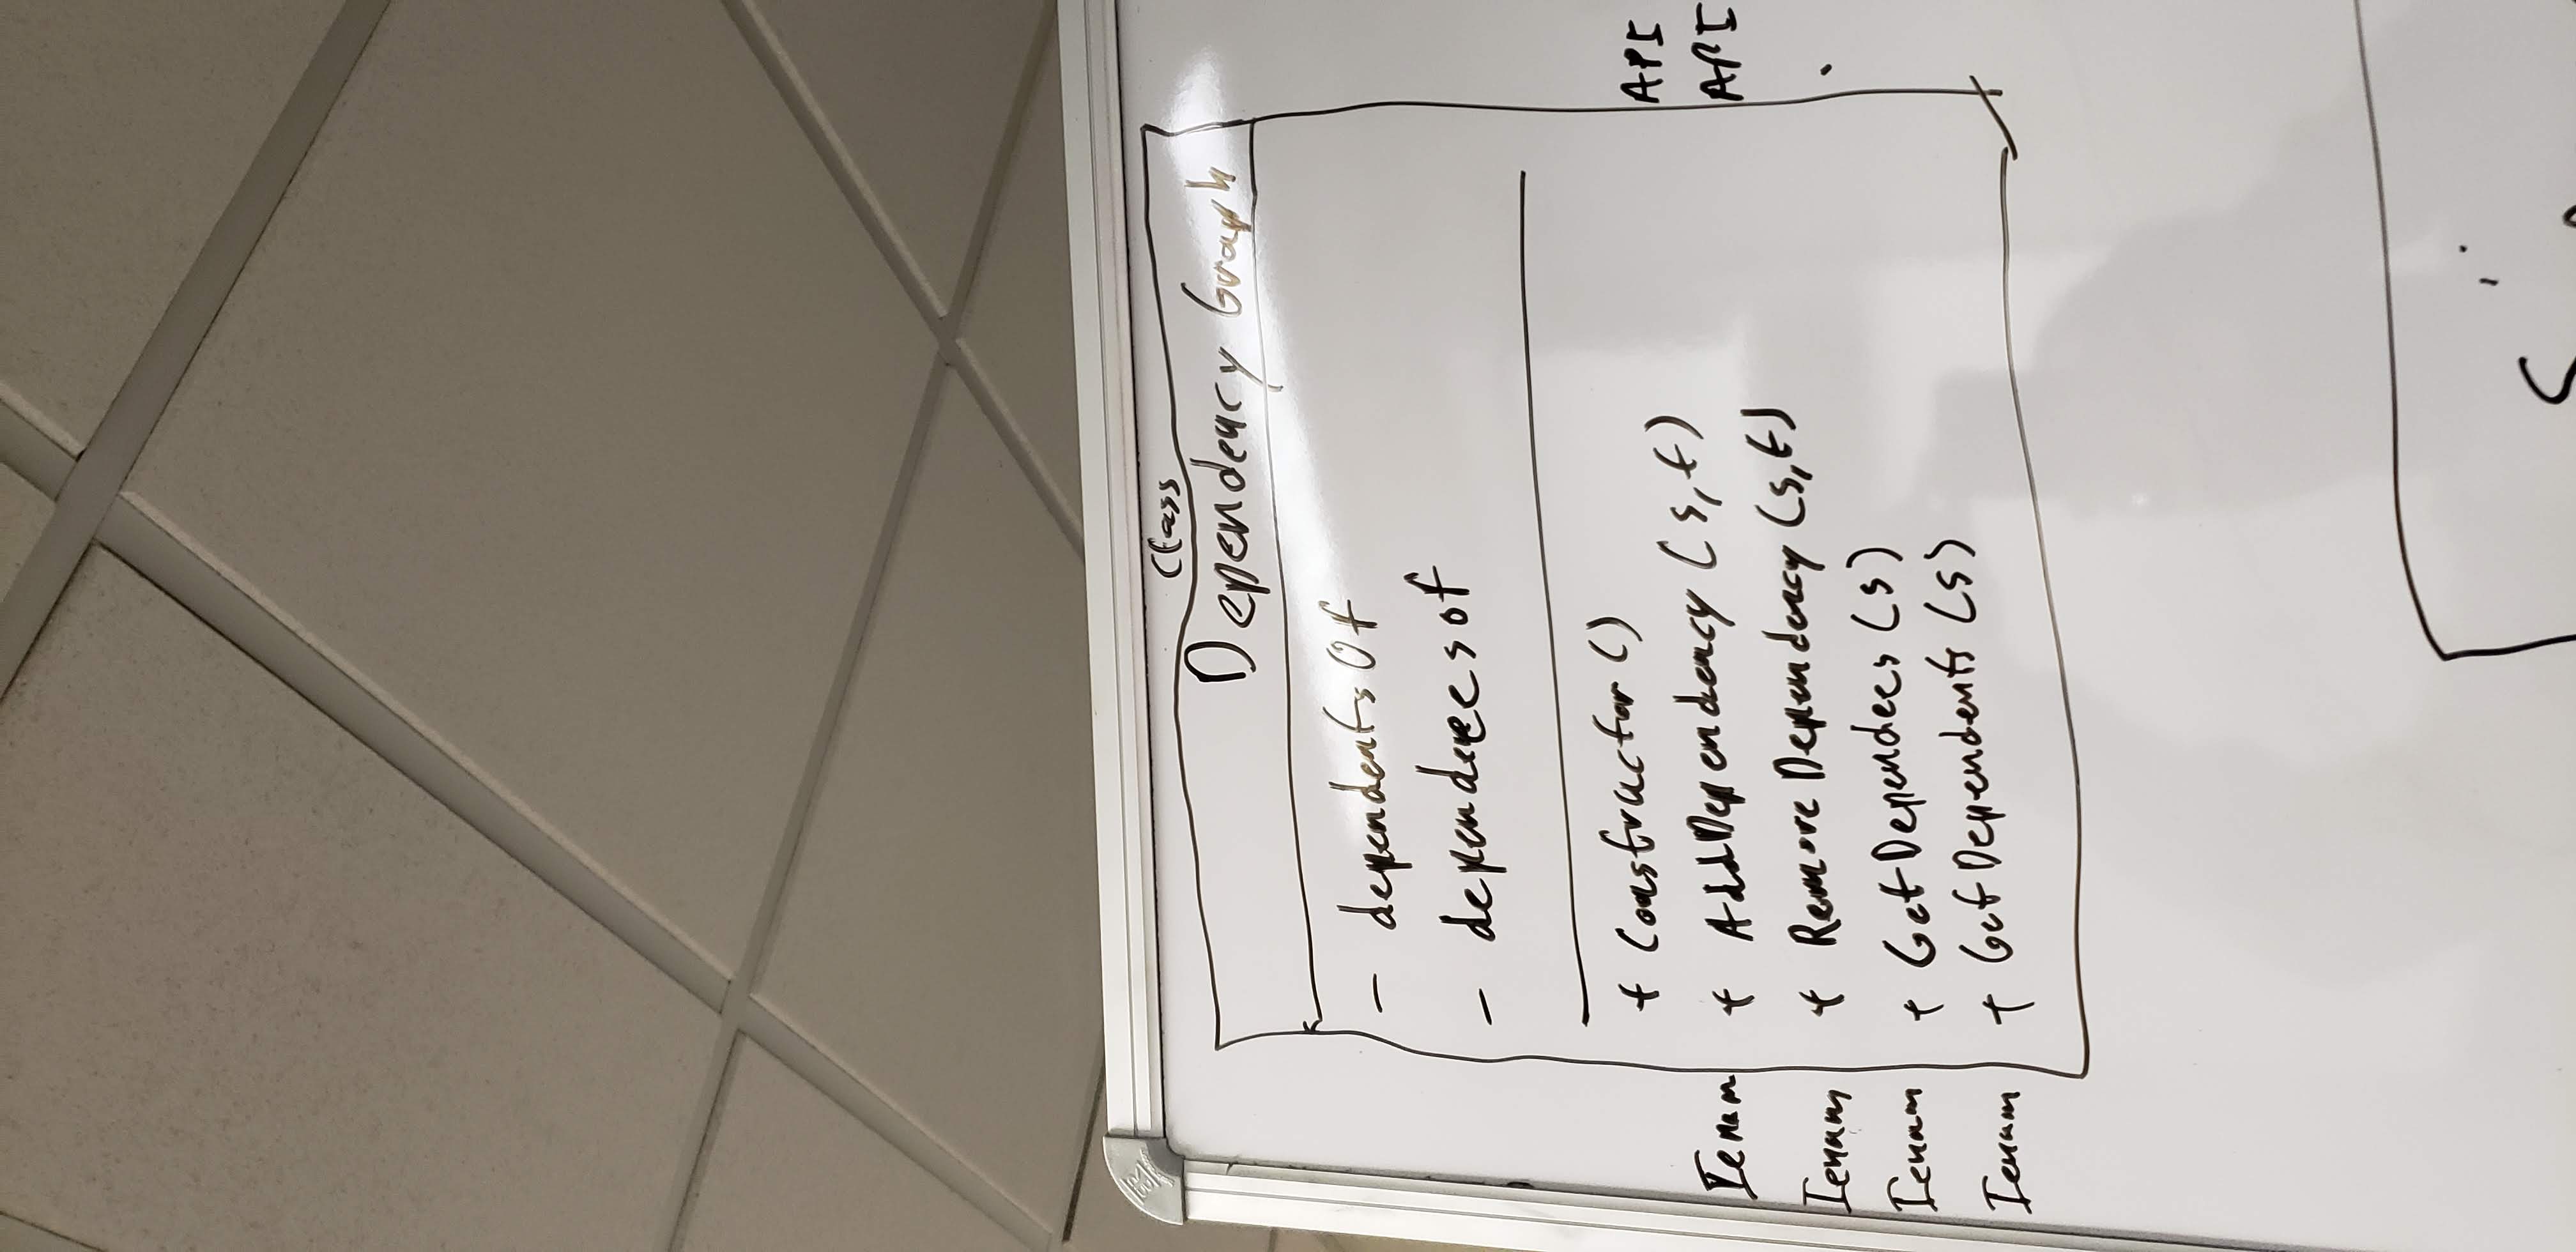 Class
Dependency Graph
- dependents Of
- dependees of
+ Constructor ()
API
Ienam + AddDependency (s,t)
API
Ienam + Remove Dependency (s,t)
Ienam + Get Dependees (s)
Ienam + Get Dependents (s)